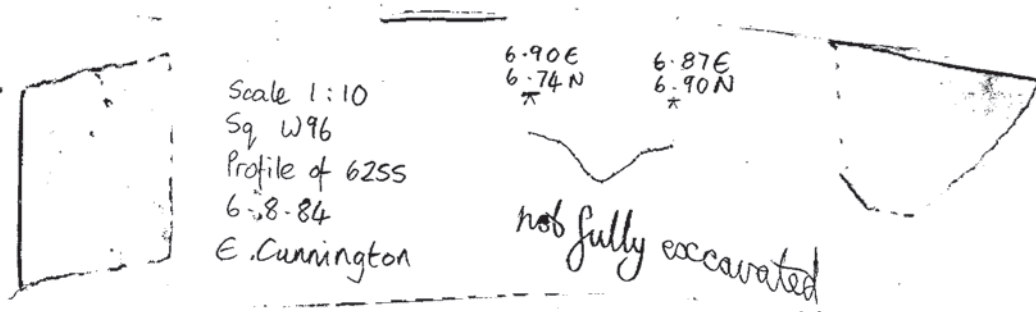 Scale 1:10
Sq W96
Profile of 6255
6.8.84
E. Cunnington
6.90E
6.74N
6.87E
6.90N
not fully exccavated